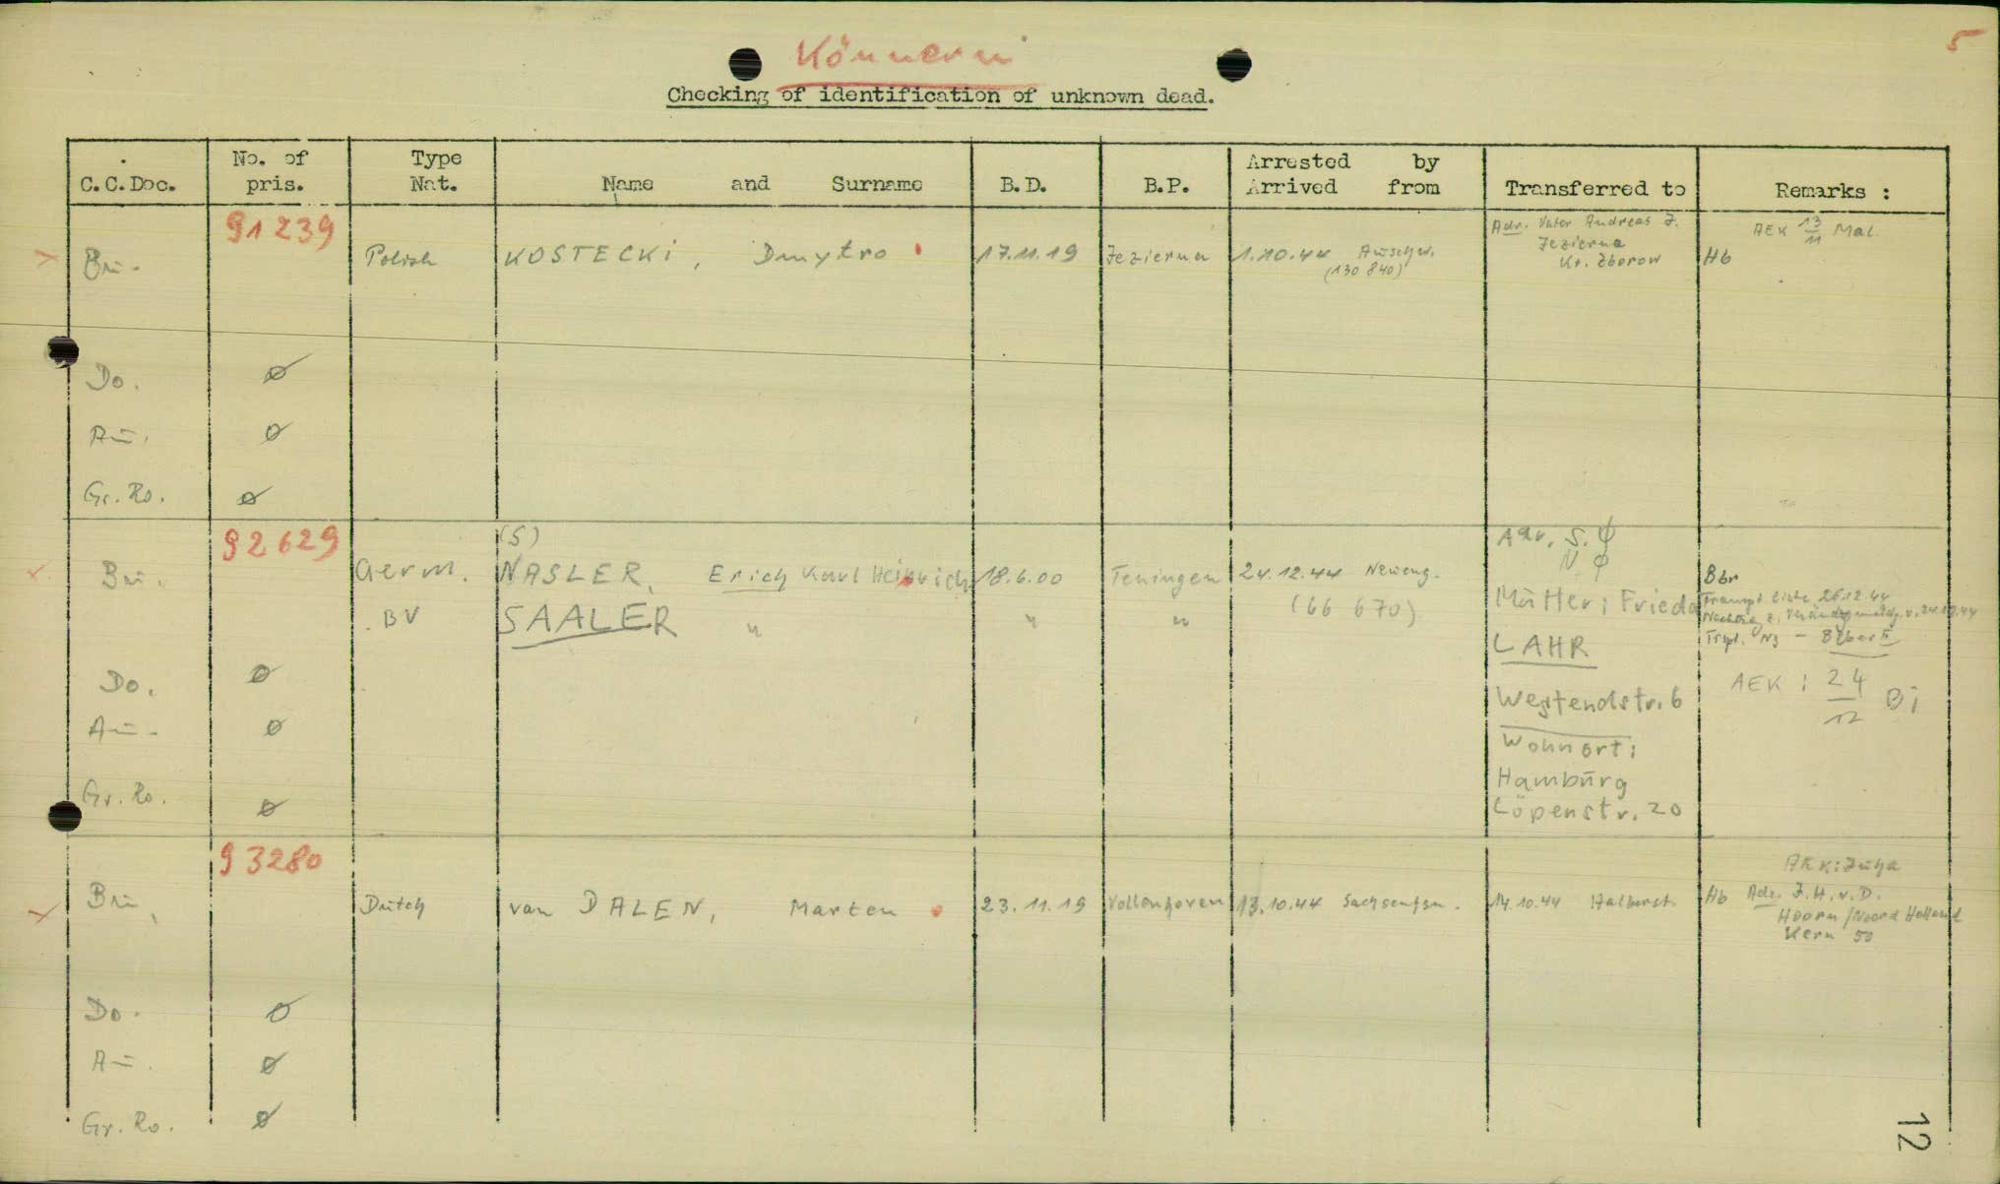 5
Könnern
Checking of identification of unknown dead.
C.C.Doc. No. of pris. Type Nat. Name and Surname B.D. B.P. Arrested by Arrived from Transferred to Remarks :
91239
Bu. Polish KOSTECKi, Dmytro 17.11.19 Jezierna 1.10.44 Auschw. (130 840) Adr. Vater Andreas J. Jezierna Kr. Zborow Hb AEK 13/11 Mal.
Do. ø
Au. ø
Gr. Ro. ø
92629
(S) Adr. S. N
Bu. Germ. NASLER, Erich Karl Heinrich 18.6.00 Teningen 24.12.44 Neueng. Bbr
BV SAALER " " " (66 670) Mutter: Frieda Transpt liste 26.12.44
LAHR
Do. ø Westendstr. 6 AEK: 24/12 Bi
Au. ø Wohnort:
Hamburg
Gr. Ro. ø Löpenstr. 20
93280
Bu. Dutch van DALEN, Marten 23.11.19 Vollenhoven 13.10.44 Sachsenhsn. 14.10.44 Halberst. Hb Adr. J.H.v.D.
Hoorn/Noord Holland
Kern 50
Do. ø
Au. ø
Gr. Ro. ø
12